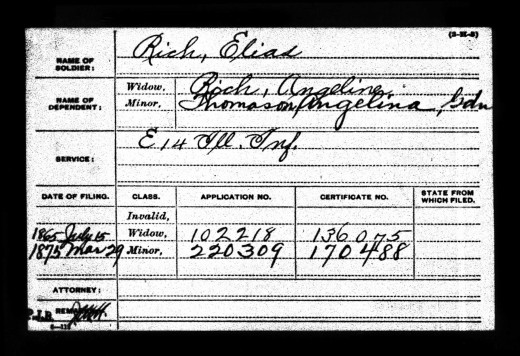 (3-H-8)
NAME OF SOLDIER: Rich, Elias
NAME OF DEPENDENT: Widow, Rich, Angeline.
Minor, Thomason, Angelina, Gdn
SERVICE: E 14 Ill. Inf.
DATE OF FILING. CLASS. APPLICATION NO. CERTIFICATE NO. STATE FROM WHICH FILED.
Invalid,
1865 July 15 Widow, 102218 136075
1875 Mar 29 Minor, 220309 170488
ATTORNEY: